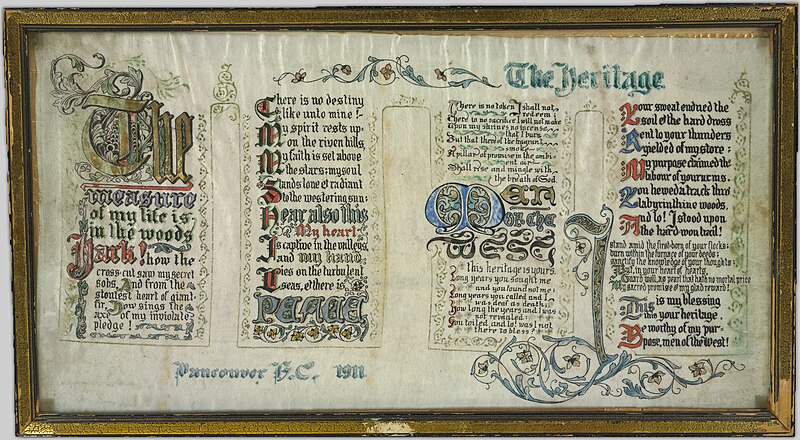 The Heritage
The
measure
of my life is
in the woods
Hark! how the
cross-cut saw my secret
sobs, And from the
stoutest heart of giant
fir, how sings the
axe of my inviolate
pledge!
There is no destiny
like unto mine!
My spirit rests up-
on the riven hills,
My faith is set above
the stars: my soul
Stands lone & radiant
to the westering sun
Hear also this
My heart
Is captive in the valleys,
and my hand
Lies on the turbulent
seas, & there is
PEACE
There is no token I shall not
redeem
There is no sacrifice I will not make
Upon my shrines no incense
that I burn
But that thereof the fragrant
smoke
A pillar of promise in the ambi-
ent air
Shall rise and mingle with
the breath of God
Men
OF THE
WEST
this heritage is yours.
Long years you sought me
and you found me not
Long years you called and I
was deaf as death:
You long the years and I was
not revealed:
You toiled and lo! was I not
there to bless
Your sweat endued the
soil & the hard dross
lent to your thunders
& yielded of my store;
My purpose claimed the
labour of your arms.
You hewed a track thro'
labyrinthine woods,
And lo! I stood upon
the hard won trail!
I stand amid the first-born of your flocks;
born within the furnace of your deeds;
sanctify the knowledge of your thoughts;
But, in your heart of hearts,
well, as pearl that hath no mortal price
My sacred promise of my glad reward;
This is my blessing
this your heritage
Be worthy of my pur-
pose, men of the West!
Vancouver B.C. 1911